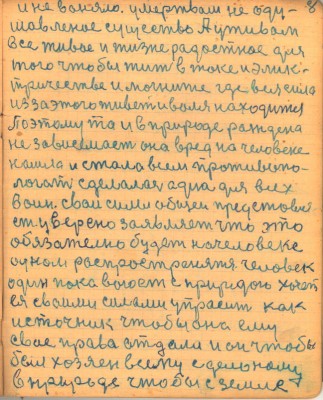 8
и не воняло. умертвам не оду-
шавленое существо А утивам
все тивое и тизне радостное для
того чтобы тит в токе и элик-
тричестве и могните где вся сила
из за этого тивет и воля находится
Поэтому та и в природе раждена
не зависимает она вред на человеке
нашла и стала всем противопо-
логат сделалас адна для всех
воин. свои сили общеи представля
ет и уверено заявляет что это
обязателно будет на человеке
одном распространятя человек
один пока воюет с природаю хочет
ея своими силами упрасит как
источник чтобы она ему
свое права атдала и он чтобы
был хозяен всему сделоному
в природе чтобы с земле